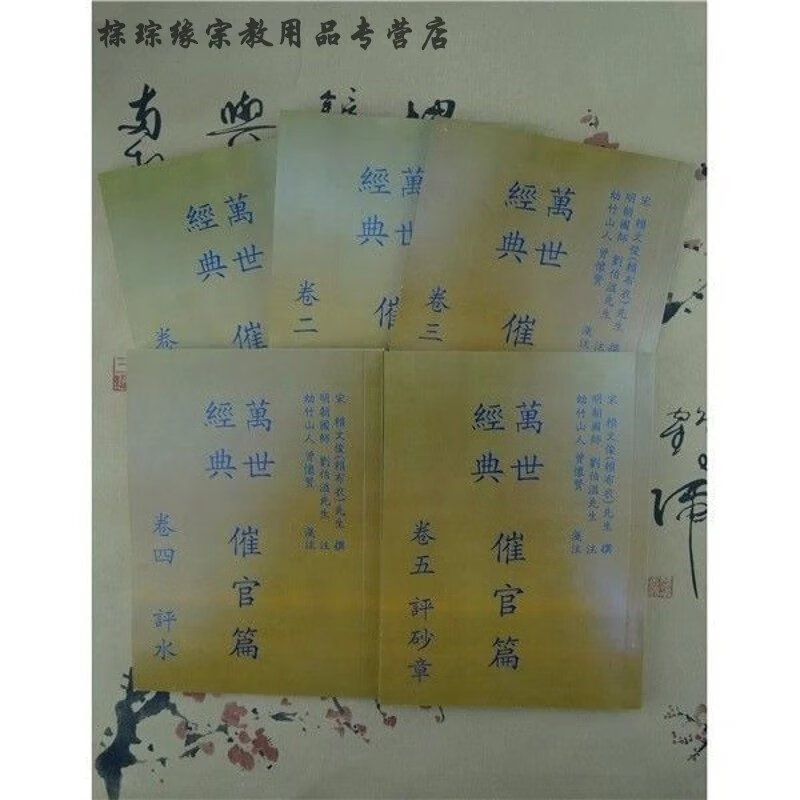 棕琮缘宗教用品专营店
萬世
經典
催
卷
萬世
經典
催
卷二
宋 賴文俊(賴布衣)先生 撰
明朝國師 劉伯溫先生 注
幼竹山人 曾懷賢 注
萬世
經典
催
卷三
宋 賴文俊(賴布衣)先生 撰
明朝國師 劉伯溫先生 注
幼竹山人 曾懷賢 注
萬世
經典
催官篇
卷四 評水
宋 賴文俊(賴布衣)先生 撰
明朝國師 劉伯溫先生 注
幼竹山人 曾懷賢 注
萬世
經典
催官篇
卷五 評砂章